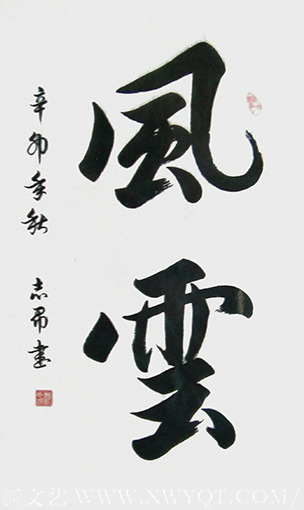 風雲
辛卯年秋 志昂書
新文艺 WWW.XWYQT.COM/